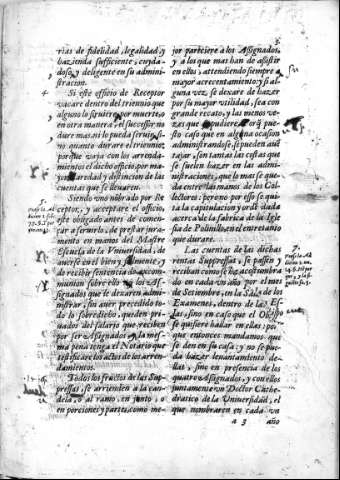 rias de fidelidad, legalidad, y
hazienda sufficiente, cuyda-
doso, y deligente en su admini-
stracion.
Si este officio de Receptor
vacare dentro del triennio que
alguno lo siruiere, por muerte, o
en otra manera, el successor no
dure mas, ni lo pueda seruir, si-
no quanto durare el triennio,
porque vaya con los arrenda-
mientos el dicho officio, por ma-
yor claridad y distincion de las
cuentas que se lleuaren.
Siendo vno nõbrado por Re
ceptor, y acceptare el officio,
este obligado antes de comen-
çar a seruirlo, de prestar jura-
mento en manos del Mastre
Escuela de la Vniuersidad, de
auerse en el bien y fielmente, y
de recibir sentencia de excomu-
munion sobre ello
signados que le dexaren admi-
nistrar, sin auer precedido to-
do lo sobredicho, queden pri-
uados del salario que reciben
por ser Assignados, y la mes-
ma pena tenga el Notario que
testificare los actos de los arren-
damientos.
Todos los fructos de las Sup-
pressas, se arrienden a la can-
dela, o al ramo, en junto, o
en porciones y partes, como me-
jor pareciere a los Assignados,
y a los que mas han de assistir
en ellos, attendiendo siempre a
mayor acrecentamiento, y si al-
guna vez, se dexare de hazer
por su mayor vtilidad, sea con
grande recato, y las menos ve-
zes que pudieren, porq̃ pue-
sto caso que en alguna ocasion
administrandose, se pueden auẽ
tajar, son tantas las costas que
se suelen hazer en las admi-
nistraciones, que lo mas se que-
da entre las manos de los Col-
lectores: pero no por esso se qui-
ta la capitulacion y ordẽ dada
acerca de la fabrica de la Igle
sia de Polinillo, en el entretanto
que durare.
Las cuentas de las dichas
rentas Suppressas, se passen y
reciban como se ha acostumbra
do en cada vn año por el mes
de Setiembre, en la Sala de los
Examenes, dentro de las Es-
las, sino en caso que el Obispo
se quisiere hallar en ellas: por
que entonces mandamos que
se den en su casa: y no se pue-
da hazer leuantamiento de-
llas, sino en presencia de los
quatro Assignados, y con ellos
juntamente vn Doctor Cathe-
dratico de la Vniuersidad, el
que nombraren en cada vn
a 3 año